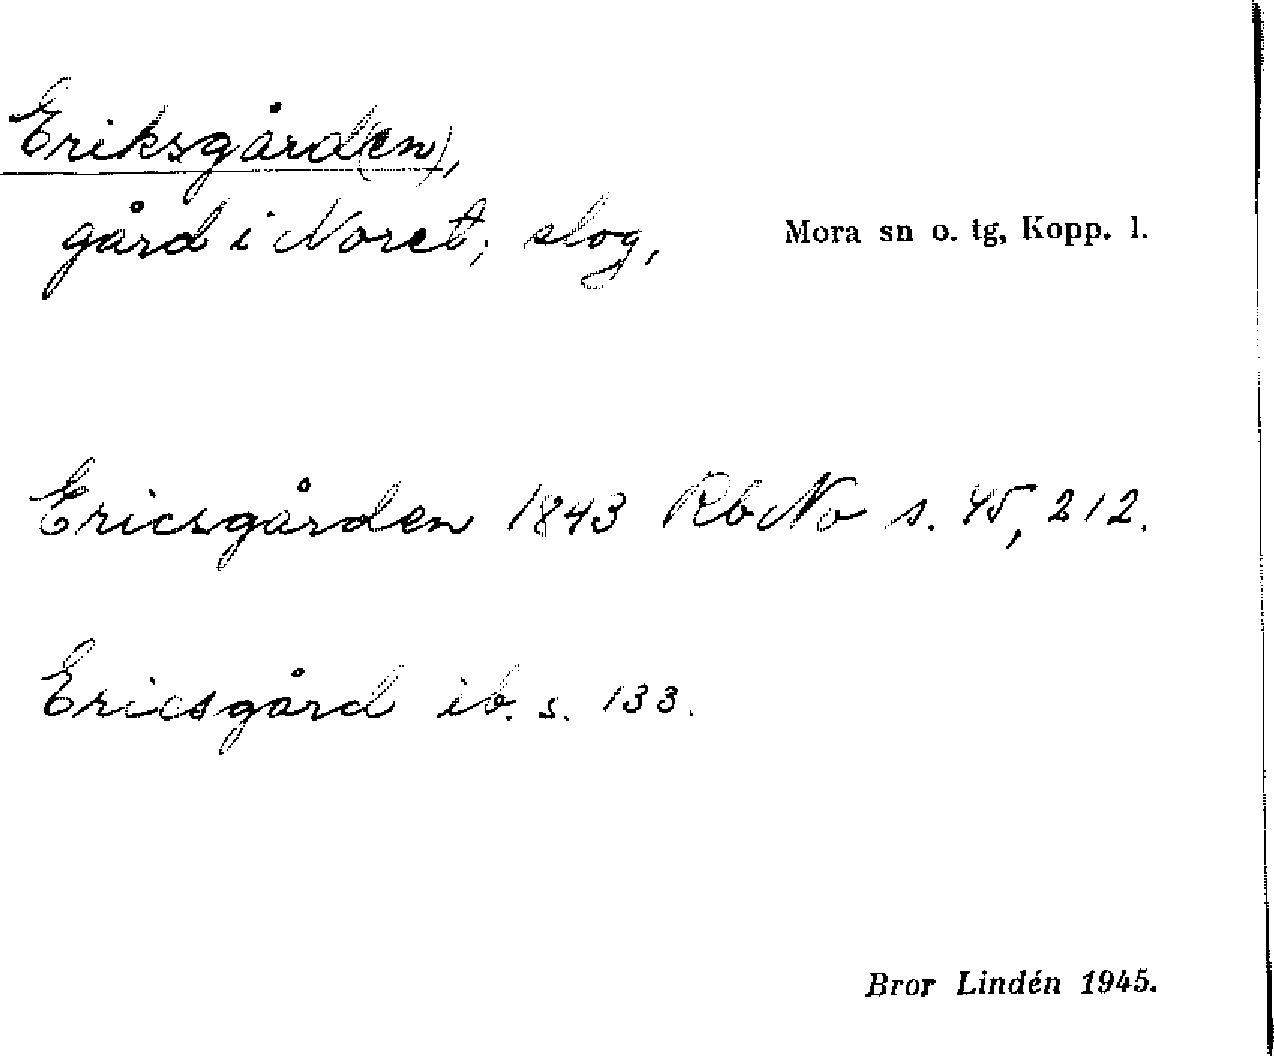 Eriksgård(en),
gård i Noret; slog, Mora sn o. tg, Kopp. l.
Ericsgården 1843 RbNo s. 45, 212.
Ericsgård ib. s. 133.
Bror Lindén 1945.